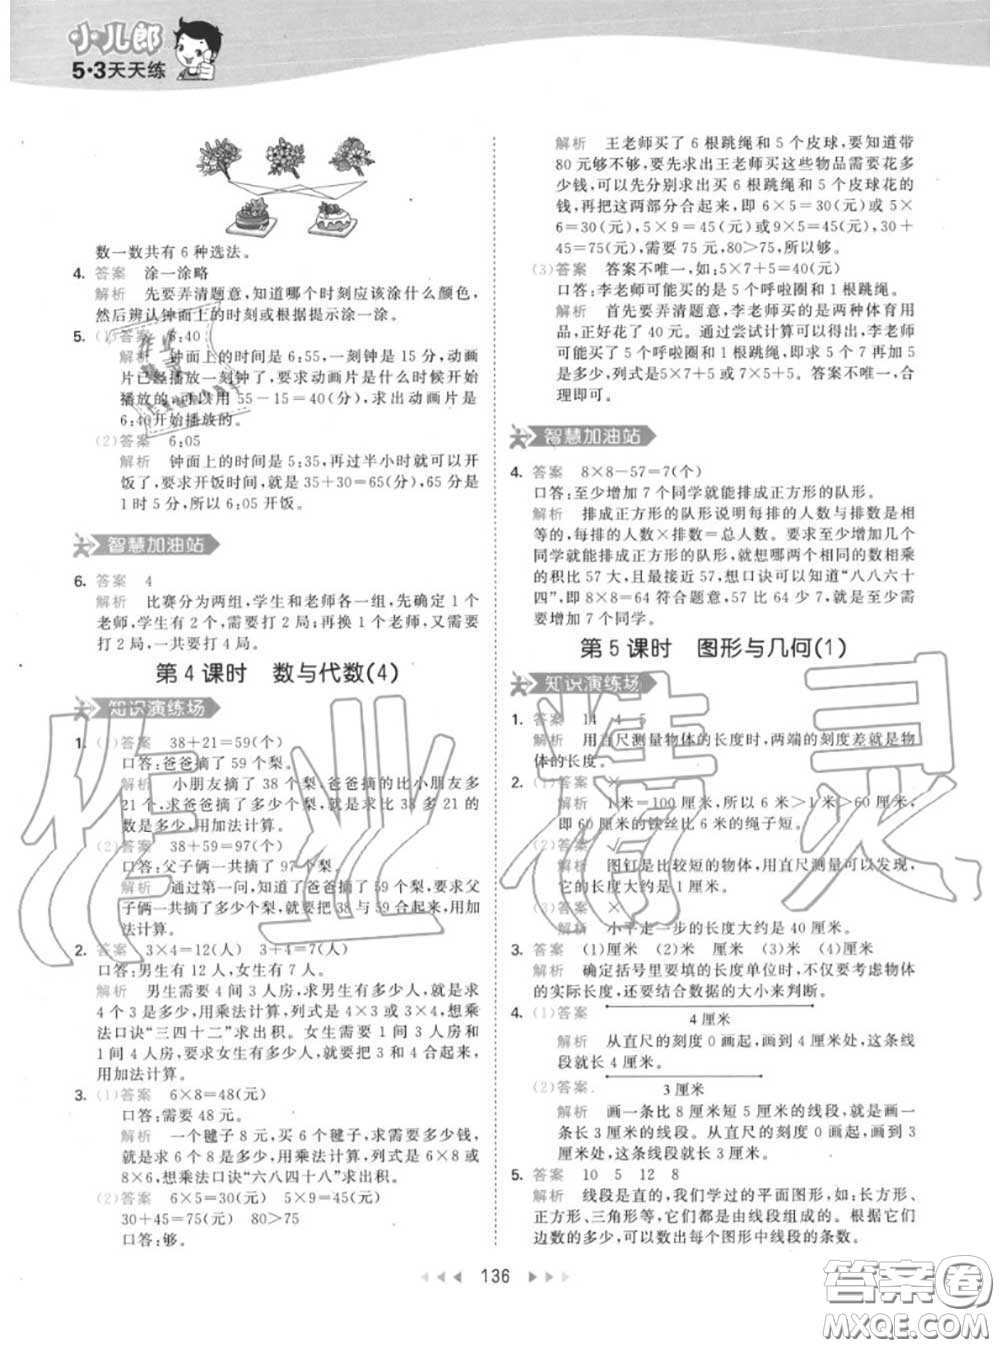 小儿郎
5·3天天练
数一数共有 6 种选法。
4. 答案 涂一涂略
解析 先要弄清题意,知道哪个时刻应该涂什么颜色,
然后辨认钟面上的时刻或根据提示涂一涂。
5. (1)答案 6:40
解析 钟面上的时间是 6:55,一刻钟是 15 分,动画
片已经播放一刻钟了,要求动画片是什么时候开始
播放的,可以用 55－15＝40(分),求出动画片是
6:40开始播放的。
(2)答案 6:05
解析 钟面上的时间是 5:35,再过半小时就可以开
饭了,要求开饭时间,就是 35＋30＝65(分),65 分是
1 时 5 分,所以 6:05 开饭。
智慧加油站
6. 答案 4
解析 比赛分为两组,学生和老师各一组,先确定 1 个
老师,学生有 2 个,需要打 2 局;再换 1 个老师,又需要
打 2 局,一共要打 4 局。
第 4 课时 数与代数(4)
知识演练场
1. (1)答案 38＋21＝59(个)
口答:爸爸摘了 59 个梨。
解析 小朋友摘了 38 个梨,爸爸比小朋友多
21 个,求爸爸摘了多少个梨,就是求比 38 多 21 的
数是多少,用加法计算。
(2)答案 38＋59＝97(个)
口答:父子俩一共摘了 97 个梨。
解析 通过第一问,知道了爸爸摘了 59 个梨,要求父
子俩一共摘了多少个梨,就要把 38 与 59 合起来,用加
法计算。
2. 答案 3×4＝12(人) 3＋4＝7(人)
口答:男生有 12 人,女生有 7 人。
解析 男生需要 4 间 3 人房,求有多少男生,就是求
4 个 3 是多少,用乘法计算,列式是 4×3 或 3×4,想乘
法口诀“三四十二”求出积。女生需要 1 间 3 人房和
1 间 4 人房,要求女生有多少人,就要把 3 和 4 合起来,
用加法计算。
3. (1)答案 6×8＝48(元)
口答:需要 48 元。
解析 一个毽子 8 元,买 6 个毽子,求需要多少钱,
就是求 6 个 8 是多少,用乘法计算,列式是 6×8 或
8×6,想乘法口诀“六八四十八”求出积。
(2)答案 6×5＝30(元) 5×9＝45(元)
30＋45＝75(元) 80＞75
口答:够。
解析 王老师买了 6 根跳绳和 5 个皮球,要知道带
80 元够不够,要先求出王老师买这些物品需要花多
少钱,可以先分别求出买 6 根跳绳和 5 个皮球花的
钱,再把这两部分合起来,即 6×5＝30(元)或 5×
6＝30(元),5×9＝45(元)或 9×5＝45(元),30＋
45＝75(元),需要 75 元,80＞75,所以够。
(3)答案 答案不唯一,如:5×7＋5＝40(元)
口答:李老师可能买的是 5 个呼啦圈和 1 根跳绳。
解析 首先要弄清楚,李老师买的是两种体育用
品,正好花了 40 元。通过尝试计算可以得出,李老师
可能买的是 5 个呼啦圈和 1 根跳绳,即求 5 个 7 再加 5
是多少,列式是5×7＋5 或 7×5＋5。答案不唯一,合
理即可。
智慧加油站
4. 答案 8×8－57＝7(个)
口答:至少增加 7 个同学就能排成正方形的队形。
解析 排成正方形的队形说明每排的人数与排数是相
等的,每排的人数×排数＝总人数。要求至少增加几个
同学就能排成正方形的队形,就想哪两个相同的数相乘
的积比 57 大,且最接近 57,想口诀可以知道“八八六十
四”,即 8×8＝64 符合题意,57 比 64 少 7,就是至少要
增加 7 个同学。
第 5 课时 图形与几何(1)
知识演练场
1. 答案 14 4 5
解析 用直尺测量物体的长度时,两端的刻度差就是物
体的长度。
2. (1)答案 ×
解析 1 米＝100 厘米,所以 6 米＞1 米＞60 厘米,
即 60 厘米的铁丝比 6 米的绳子短。
(2)答案 √
解析 图钉是比较短的物体,用直尺测量可以发现,
它的长度大约是 1 厘米。
(3)答案 ×
解析 小平走一步的长度大约是 40 厘米。
3. 答案 (1)厘米 (2)米 厘米 (3)米 (4)厘米
解析 确定括号里要填的长度单位时,不仅要考虑物体
的实际长度,还要结合数据的大小来判断。
4. (1)答案
4 厘米
解析 从直尺的刻度 0 画起,画到 4 厘米处,这条线
段就长 4 厘米。
(2)答案
3 厘米
解析 画一条比 8 厘米短 5 厘米的线段,就是画一
条长 3 厘米的线段。从直尺的刻度 0 画起,画到
3 厘米处,这条线段就长 3 厘米。
5. 答案 10 5 12 8
解析 线段是直的,我们学过的平面图形,如:长方形、
正方形、三角形等,它们都是由线段组成的。根据它们
边数的多少,可以数出每个图形中线段的条数。
136
作业精灵
答案卷
MXQE.COM